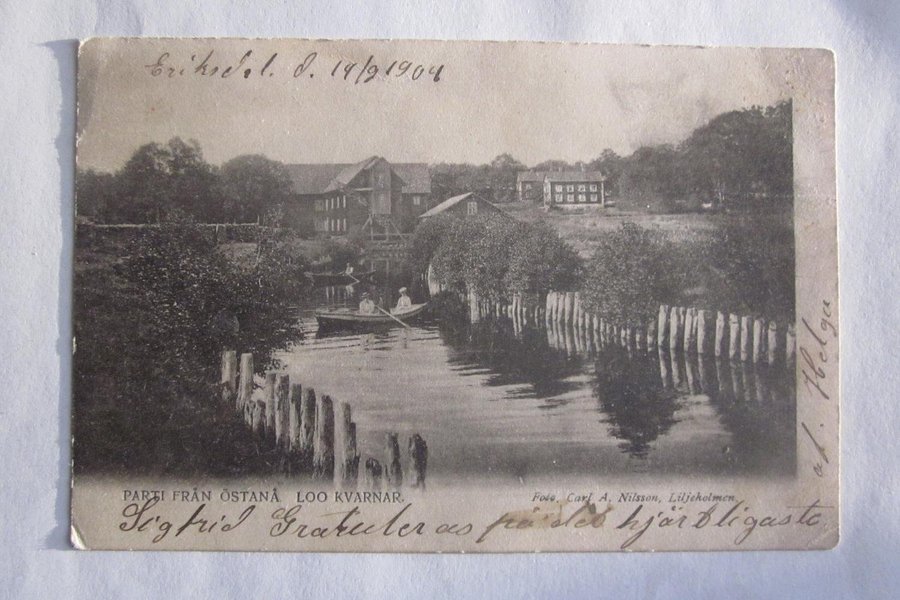 Eriksdal d. 19/9 1904
PARTI FRÅN ÖSTANÅ. LOO KVARNAR.
Foto. Carl A. Nilsson, Liljeholmen.
Sigfrid Gratuleras på det hjärtligaste
af. Helga